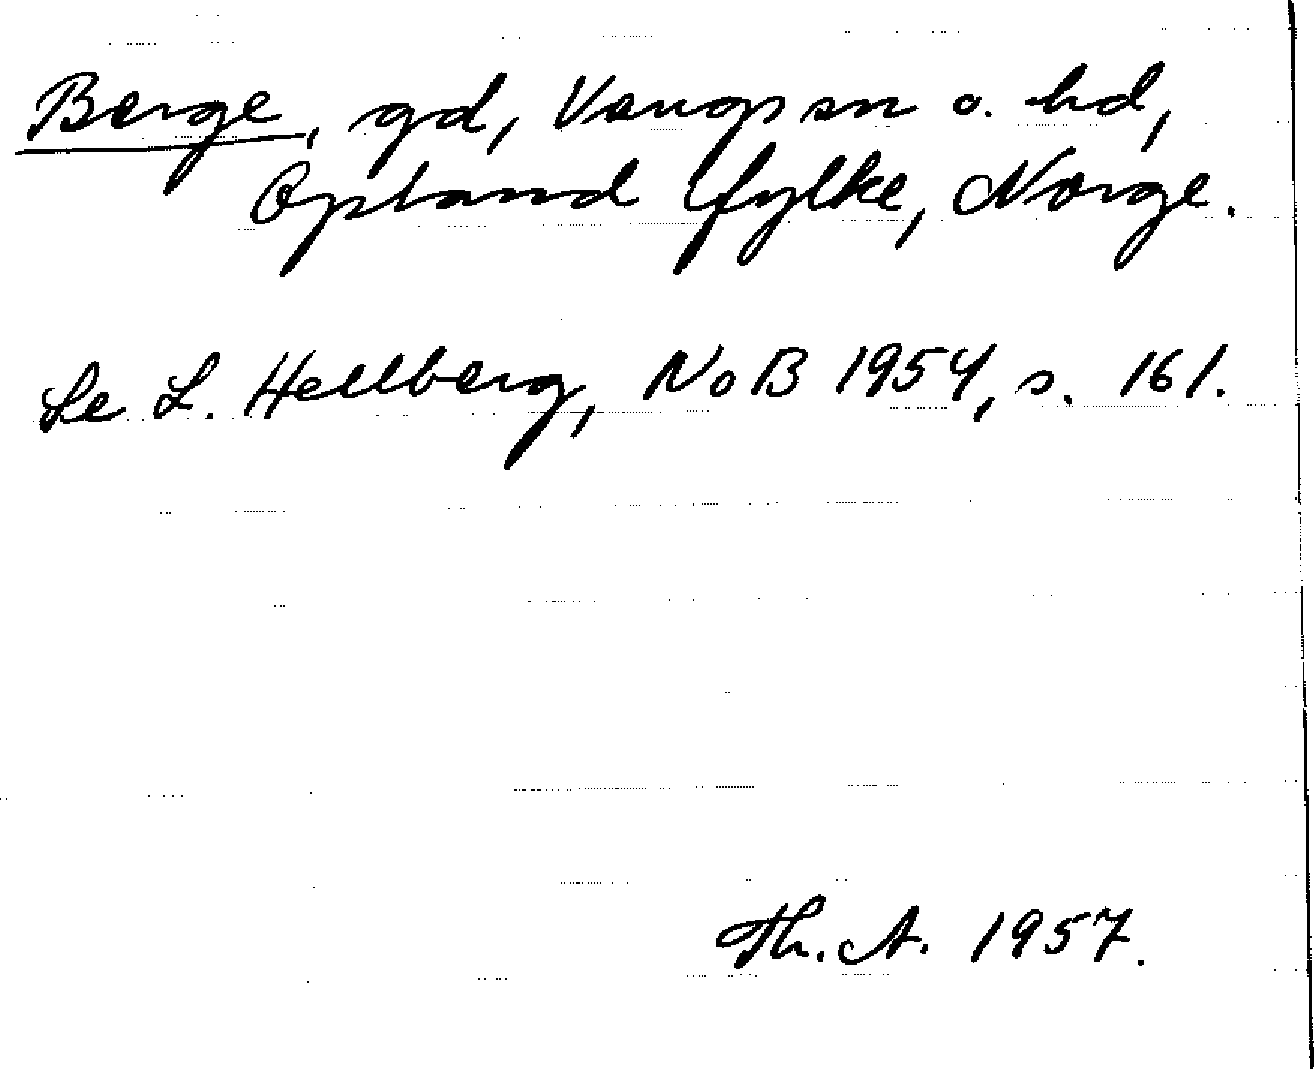 Berge, gd, Vangs sn o. hd,
Opland fylke, Norge.
Se L. Hellberg, NoB 1954, s. 161.
Th. A. 1957.